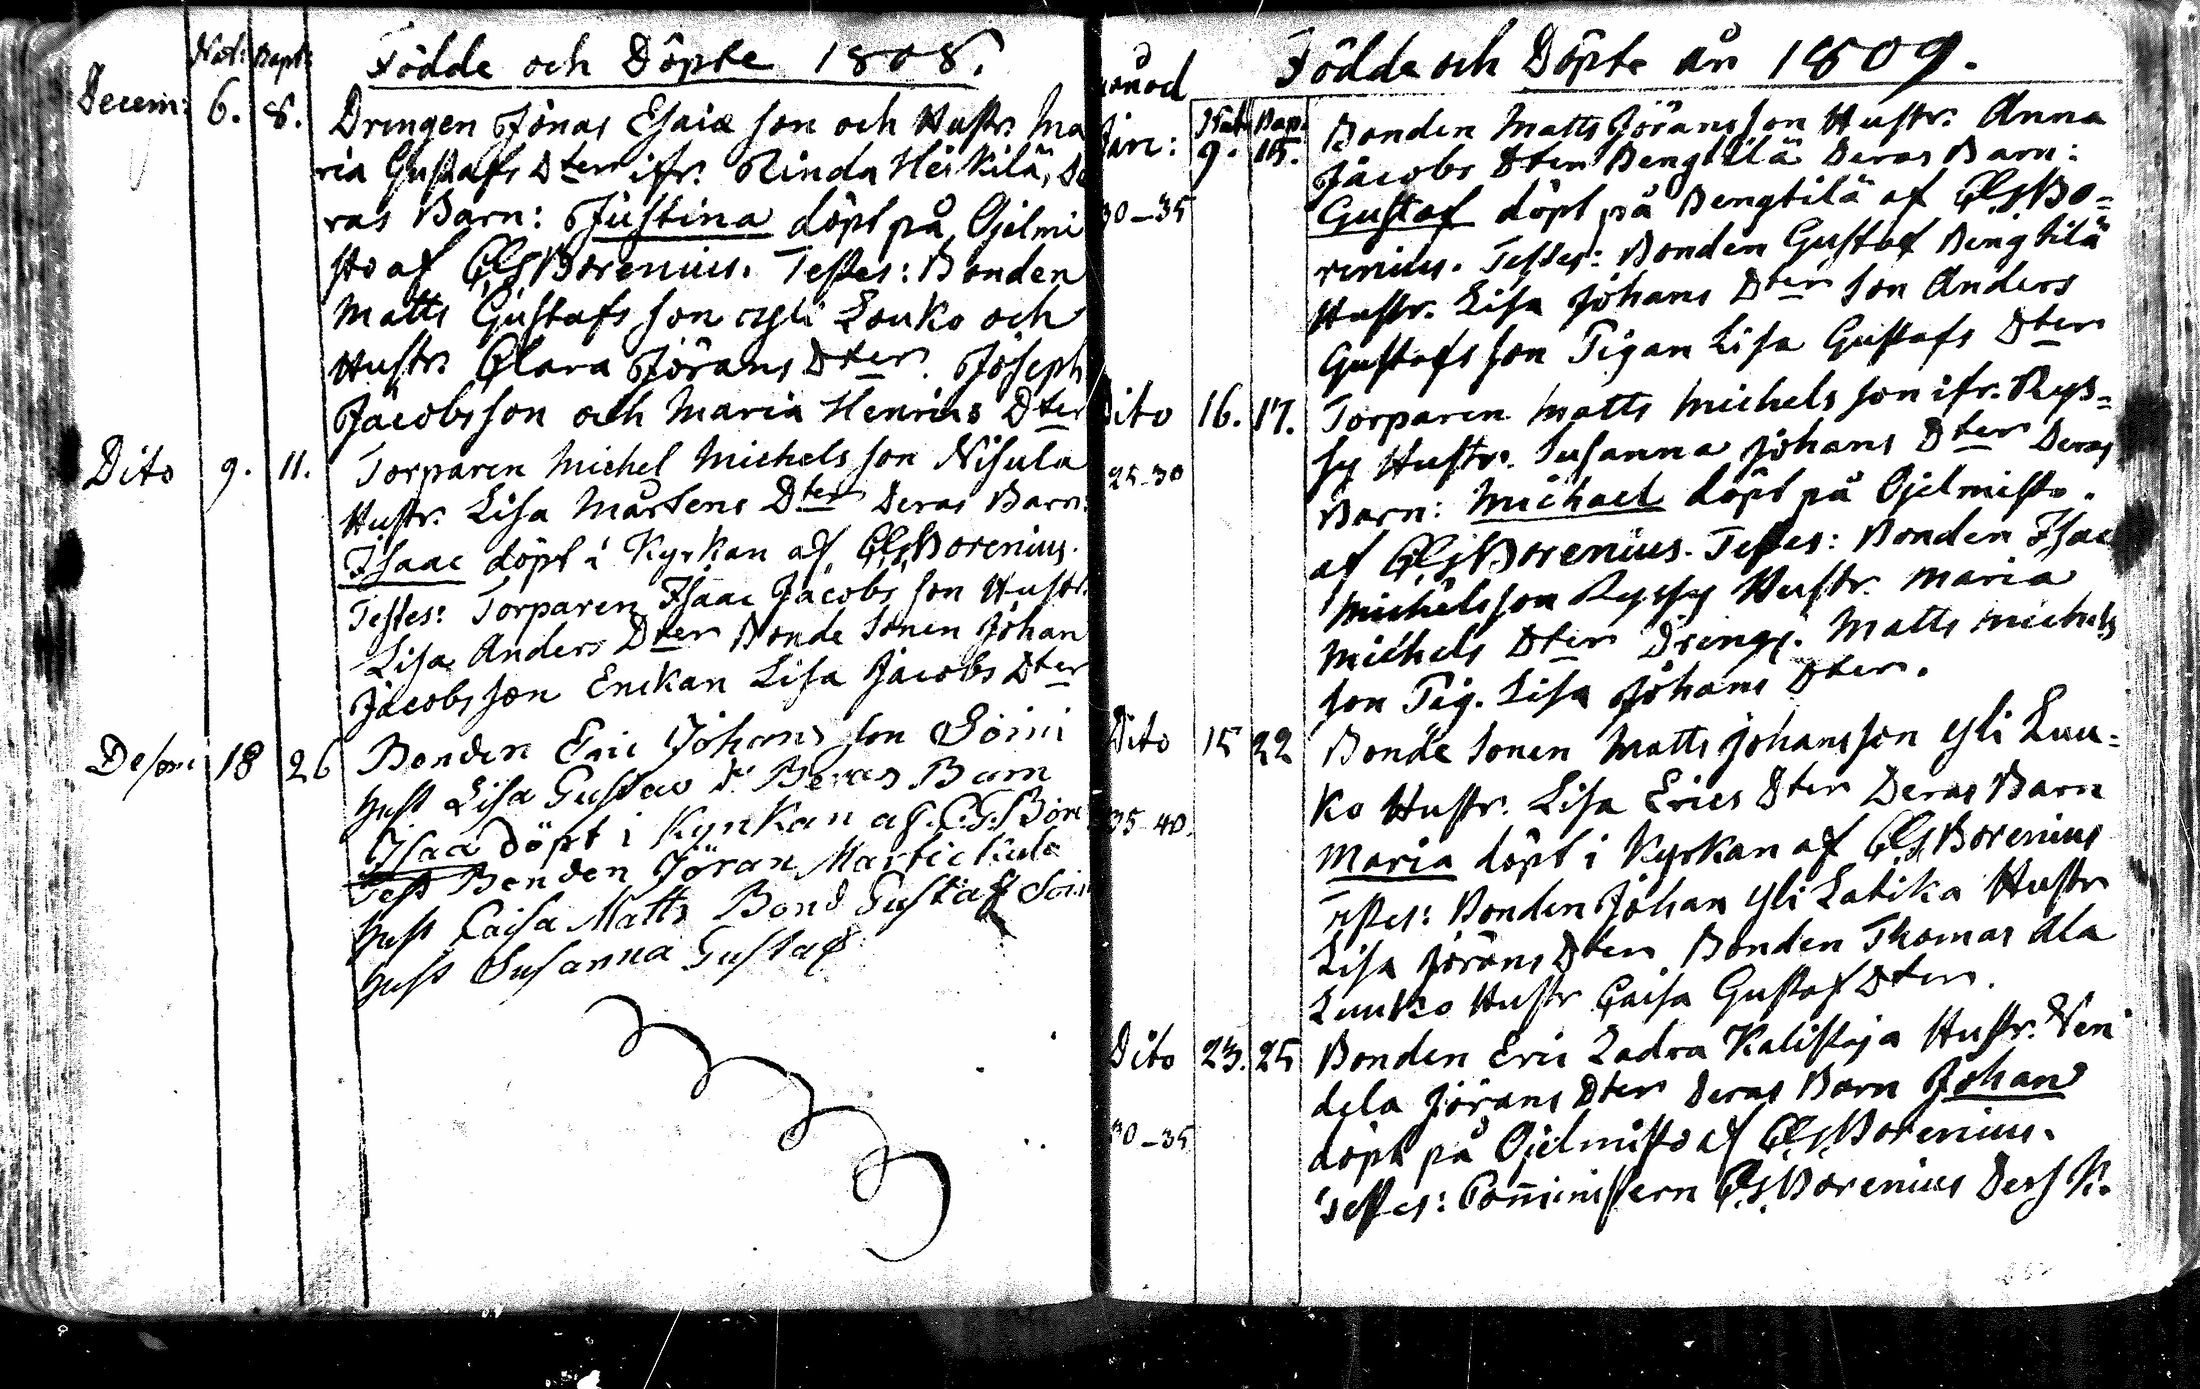 Födde och Döpte 1808.
Nat: Bapt:
Decem: 6. 8. Drengen Jonas Esaiæ son och Hustr. Ma
ria Gustafs Dter ifr. Rinda Heikilä, De
ras Barn: Justina döpt på Ojelmi
sto af C.G. Borenius. Testes: Bonden
Matts Gustafs son Ylii Louko och
Hustr. Clara Jörans Dter. Joseph
Jacobsson och Maria Henrics Dter
Dito 9. 11. Torparen Michel Michels son Nisula
Hustr. Lisa Mårtens Dter Deras Barn:
Isaac döpt i Kyrkan af C.G. Borenius.
Testes: Torparen Isaac Jacobs son Hustr.
Lisa Anders Dter Bonde Sonen Johan
Jacobs son Enckan Lisa Jacobs Dter
18 26 Bonden Eric Johans son Soini
Hust Lisa Gustav dr Deras Barn
Isaa döpt i Kyrkan af C.G. Bore
Test Bonden Jöran Martickala
Hust Caisa Matts Bond Gustaf Soin
Hust Susanna Gustaf
Födde och Döpte år 1809.
Nat. Bap.
Jan: 9. 15. Bonden Matts Jörans son Hustr: Anna
Jacobs Dter Bengtilä Deras Barn:
30-35 Gustaf döpt på Bengtilä af C.G. Bo=
renius. Testes: Bonden Gustaf Bengtilä
Hustr. Lisa Johans Dter Son Anders
Gustafs son Pigan Lisa Gustafs Dter
Dito 16. 17. Torparen Matts Michels son ifr. Rys=
sy Hustr. Susanna Johans Dter Deras
25-30 Barn: Michael döpt på Ojelmisto.
af C.G. Borenius. Testes: Bonden Isac
Michelsson Ryssy Hustr. Maria
Michels Dter Drengs. Matts Michels
son Pig. Lisa Johans Dter.
Dito 15 22 Bonde Sonen Matts Johansson Yli Luu=
ko Hustr. Lisa Erics Dter Deras Barn
35-40. Maria döpt i Kyrkan af C.G. Borenius
Testes: Bonden Johan Yli Latika Hustr
Lisa Jörans Dter Bonden Thomas Ala
Luuko Hustr Caisa Gustaf Dter.
Dito 23. 25 Bonden Eric Ladva Kalistaja Hustr. Ven
dela Jörans Dter Deras Barn Johan
30-35 döpt på Ojelmisto af C.G. Borenius.
Testes: Com̄inistern C.G. Borenius Dess K.